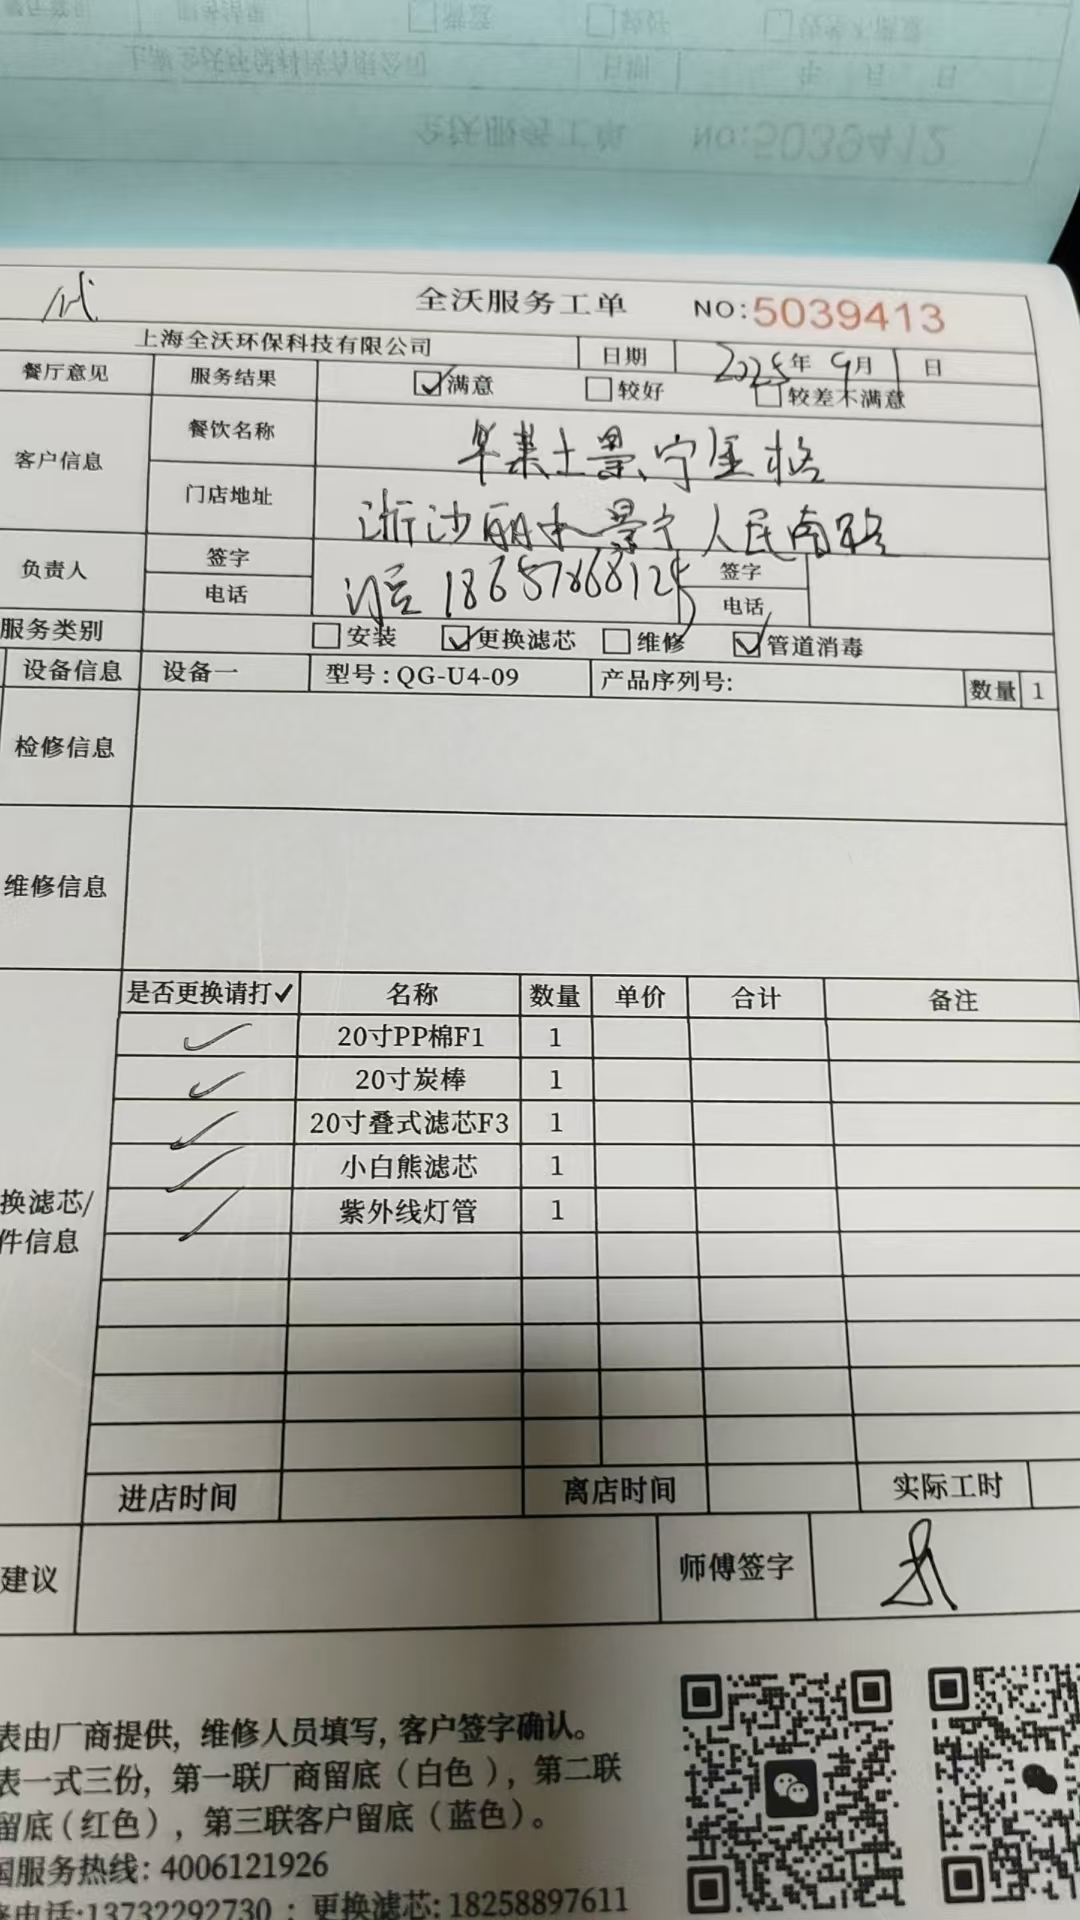 全沃服务工单 NO:5039412
全沃服务工单 NO:5039413
上海全沃环保科技有限公司 日期 2025年9月 日
餐厅意见 服务结果 ☑满意 □较好 □较差不满意
客户信息 餐饮名称 华莱士景宁
门店地址 浙 丽水景宁人民南路
负责人 签字 签字
电话 18657868125 电话
服务类别 □安装 ☑更换滤芯 □维修 ☑管道消毒
设备信息 设备一 型号:QG-U4-09 产品序列号: 数量 1
检修信息
维修信息
是否更换请打✓ 名称 数量 单价 合计 备注
✓ 20寸PP棉F1 1
✓ 20寸炭棒 1
✓ 20寸叠式滤芯F3 1
✓ 小白熊滤芯 1
✓ 紫外线灯管 1
换滤芯/
件信息
进店时间 离店时间 实际工时
建议 师傅签字
表由厂商提供, 维修人员填写, 客户签字确认。
表一式三份, 第一联厂商留底(白色), 第二联
留底(红色), 第三联客户留底(蓝色)。
国服务热线: 4006121926
电话:13732292730 ; 更换滤芯: 18258897611